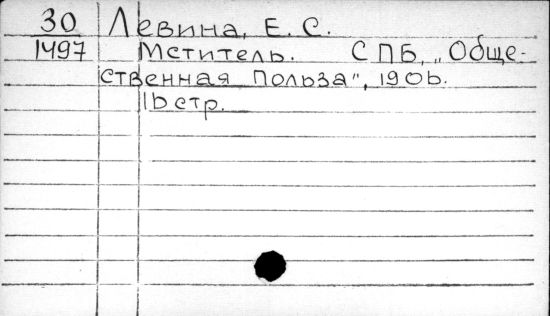 30 Левина, Е. С.
1497 Мститель. СПБ, „Обще-
ственная Польза", 1906.
16 стр.